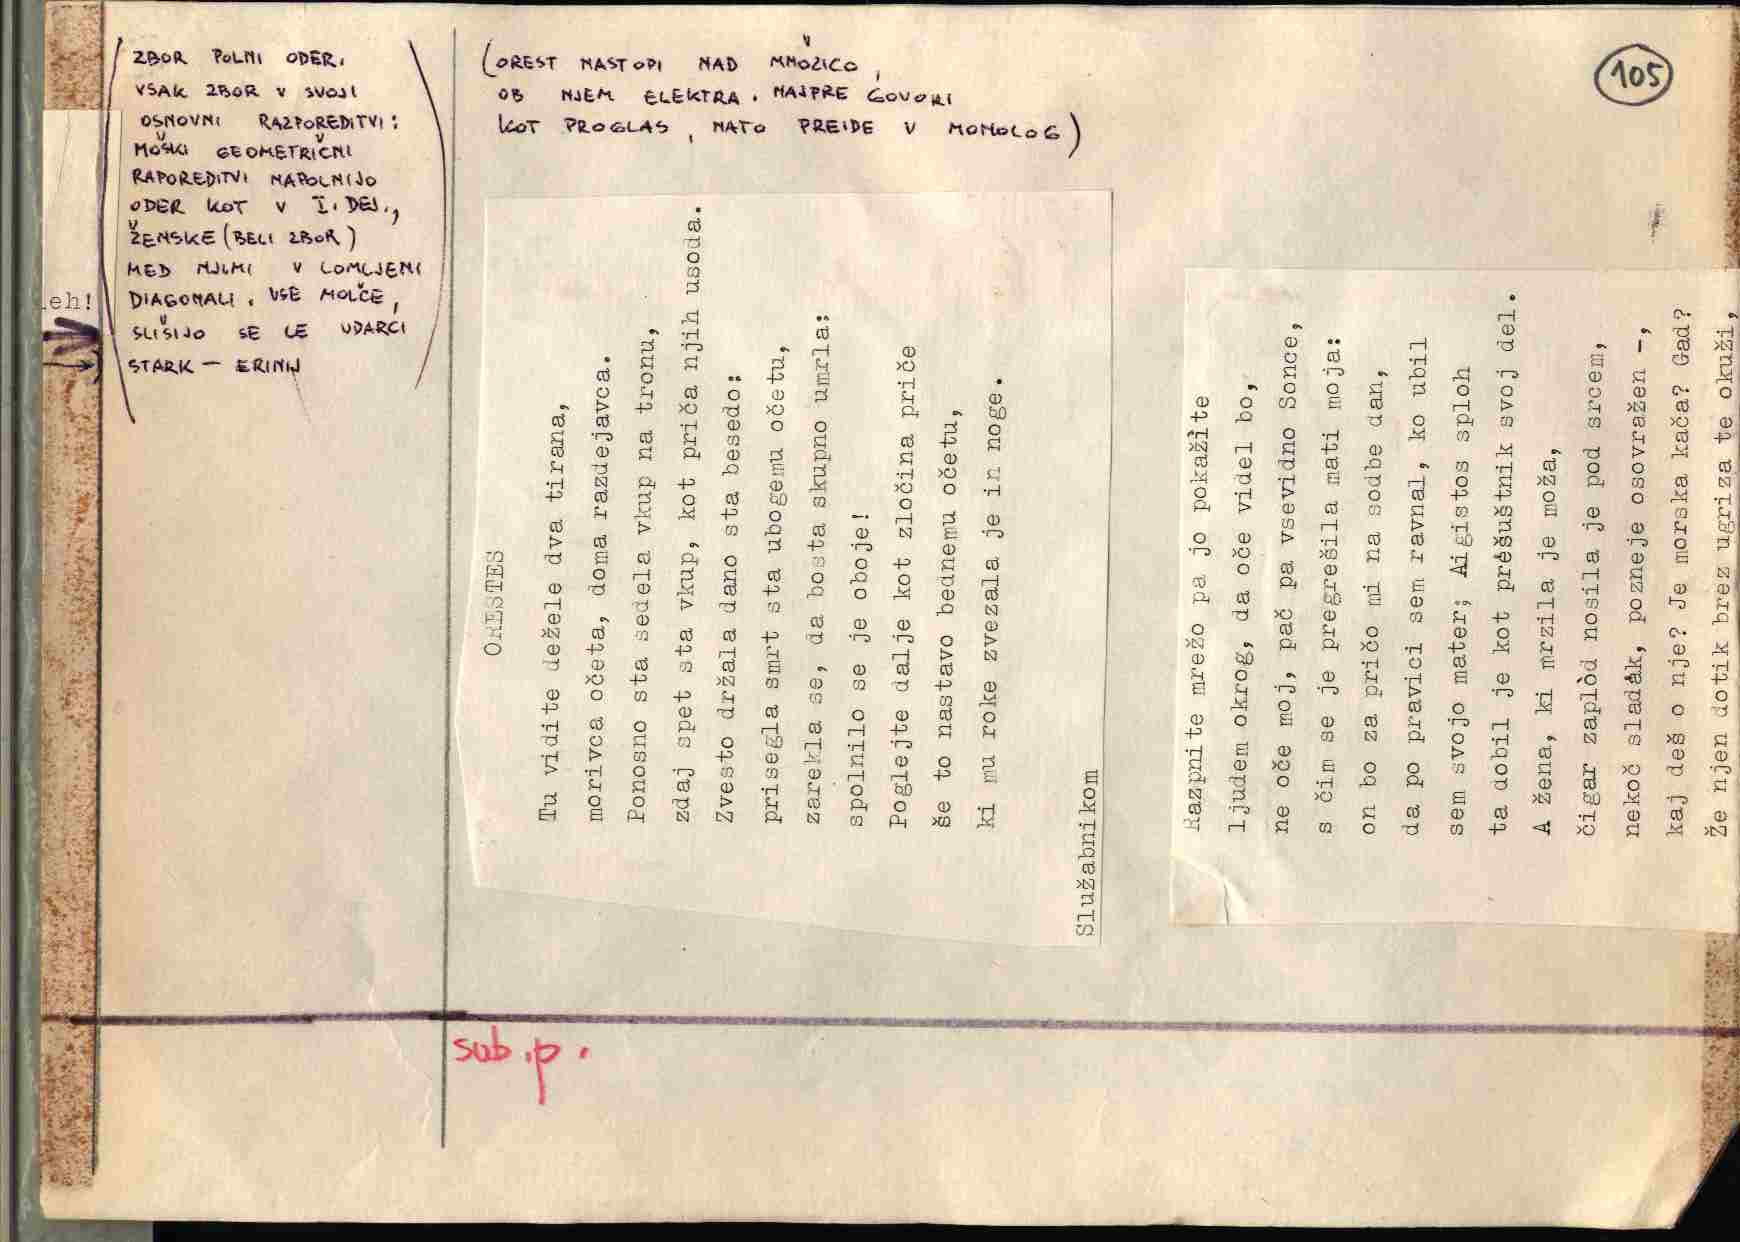 ZBOR POLNI ODER.
VSAK ZBOR V SVOJI
OSNOVNI RAZPOREDITVI:
MOŠKI GEOMETRIČNI
RAPOREDITVI NAPOLNIJO
ODER KOT V I. DEJ.,
ŽENSKE (BELI ZBOR)
MED NJIMI V LOMLJENI
DIAGONALI. VSE MOLČE,
SLIŠIJO SE LE UDARCI
STARK – ERINIJ
eh!
(OREST NASTOPI NAD MNOŽICO,
OB NJEM ELEKTRA. NAJPRE GOVORI
KOT PROGLAS, NATO PREIDE V MONOLOG)
105
ORESTES
Tu vidite dežele dva tirana,
morivca očeta, doma razdejavca.
Ponosno sta sedela vkup na tronu,
zdaj spet sta vkup, kot priča njih usoda.
Zvesto držala dano sta besedo:
prisegla smrt sta ubogemu očetu,
zarekla se, da bosta skupno umrla:
spolnilo se je oboje!
Poglejte dalje kot zločina priče
še to nastavo bednemu očetu,
ki mu roke zvezala je in noge.
Služabnikom
Razpnite mrežo pa jo pokažite
ljudem okrog, da oče videl bo,
ne oče moj, pač pa vsevidno Sonce,
s čim se je pregrešila mati moja:
on bo za pričo mi na sodbe dan,
da po pravici sem ravnal, ko ubil
sem svojo mater; Aigistos sploh
ta dobil je kot prešuštnik svoj del.
A žena, ki mrzila je moža,
čigar zaplòd nosila je pod srcem,
nekoč sladàk, pozneje osovražen –,
kaj deš o nje? Je morska kača? Gad?
Že njen dotik brez ugriza te okuži,
sub.p.